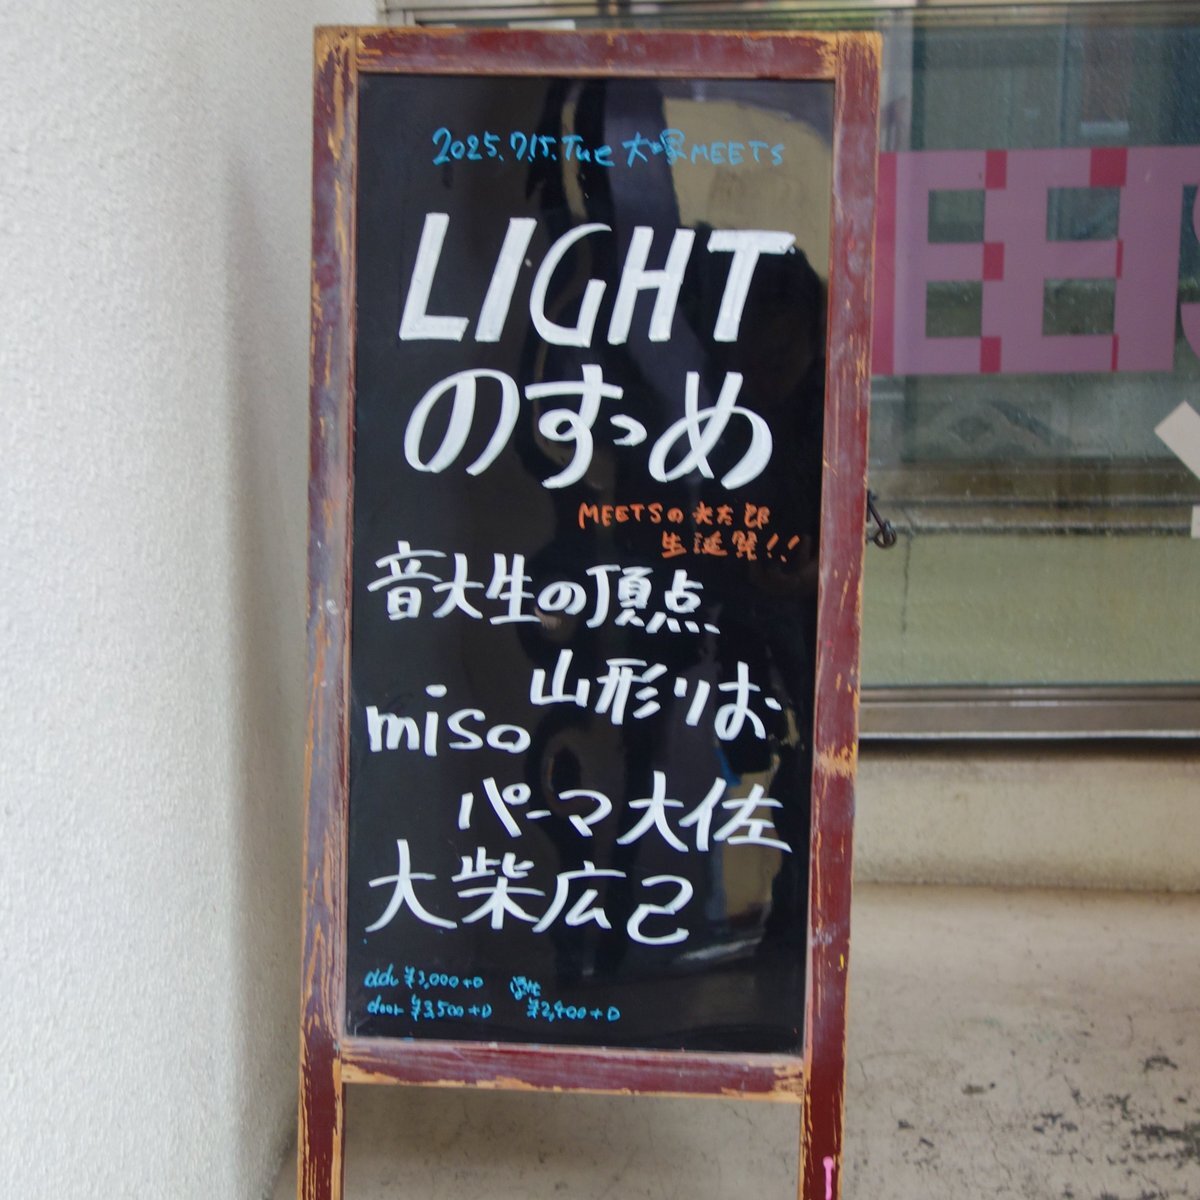 2025.7.15.Tue 大塚MEETS
LIGHT
のすゝめ
MEETSの犬太郎
生誕祭!!
音大生の頂点
山形りお
miso
パーマ大佐
大柴広己
adv ¥3,000+D
door ¥3,500+D
¥2,400+D
EES